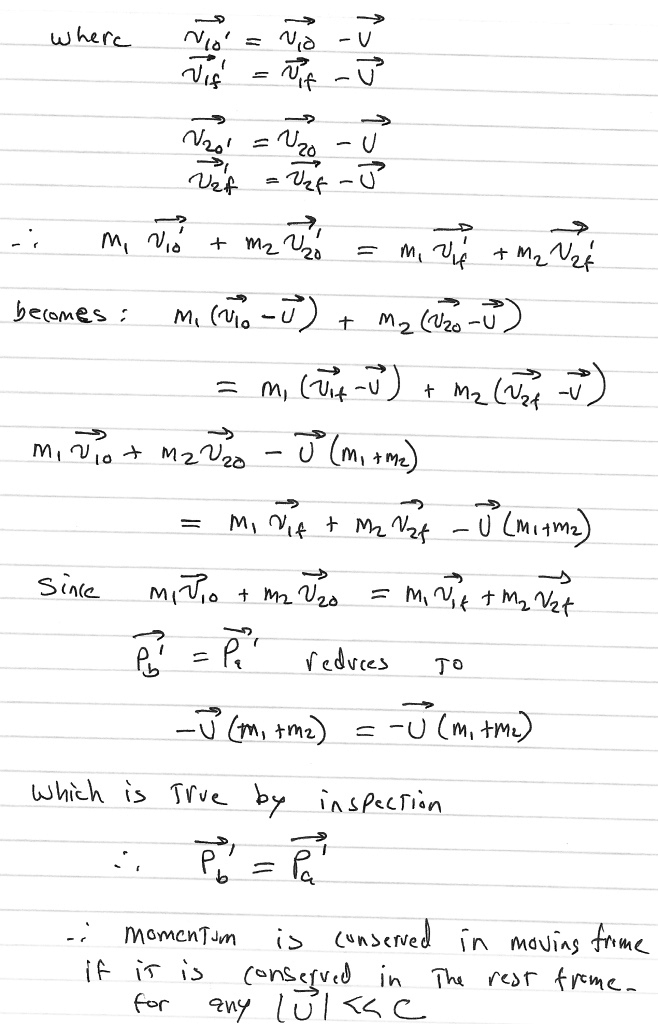 where v⃗₁₀' = v⃗₁₀ - U⃗
v⃗₁f' = v⃗₁f - U⃗
v⃗₂₀' = v⃗₂₀ - U⃗
v⃗₂f' = v⃗₂f - U⃗
∴ m₁ v⃗₁₀' + m₂ v⃗₂₀' = m₁ v⃗₁f' + m₂ v⃗₂f'
becomes : m₁ (v⃗₁₀ - U⃗) + m₂ (v⃗₂₀ - U⃗)
= m₁ (v⃗₁f - U⃗) + m₂ (v⃗₂f - U⃗)
m₁ v⃗₁₀ + m₂ v⃗₂₀ - U⃗ (m₁ + m₂)
= m₁ v⃗₁f + m₂ v⃗₂f - U⃗ (m₁ + m₂)
Since m₁ v⃗₁₀ + m₂ v⃗₂₀ = m₁ v⃗₁f + m₂ v⃗₂f
P⃗b' = P⃗a' reduces To
-U⃗ (m₁ + m₂) = -U⃗ (m₁ + m₂)
which is True by inspection
∴ P⃗b' = P⃗a'
∴ momentum is conserved in moving frame
if it is conserved in The rest frame.
for any |U⃗| << C